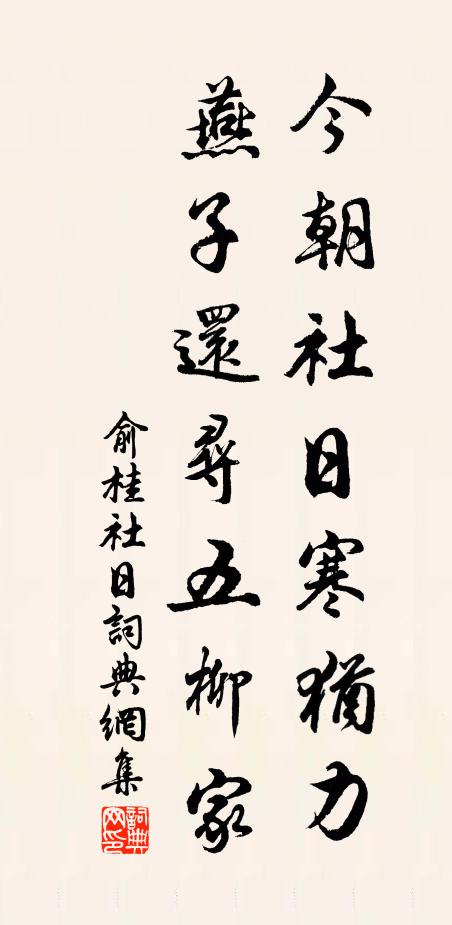 今朝社日寒猶力
燕子還尋五柳家
俞桂社日詞典網集
詞典網印